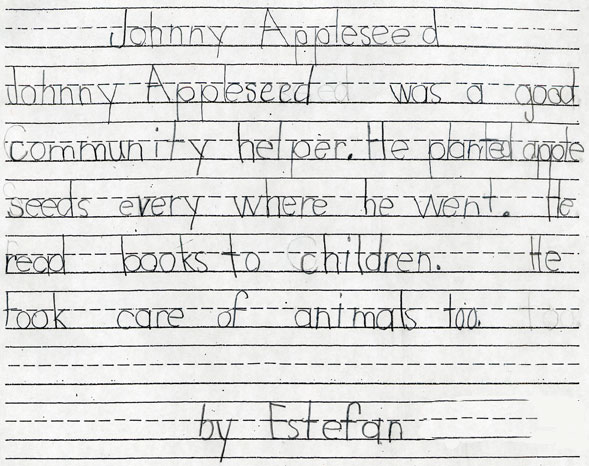 Johnny Appleseed
Johnny Appleseed was a good
community helper. He planted apple
seeds every where he went. He
read books to children. He
took care of animals too.
by Estefan